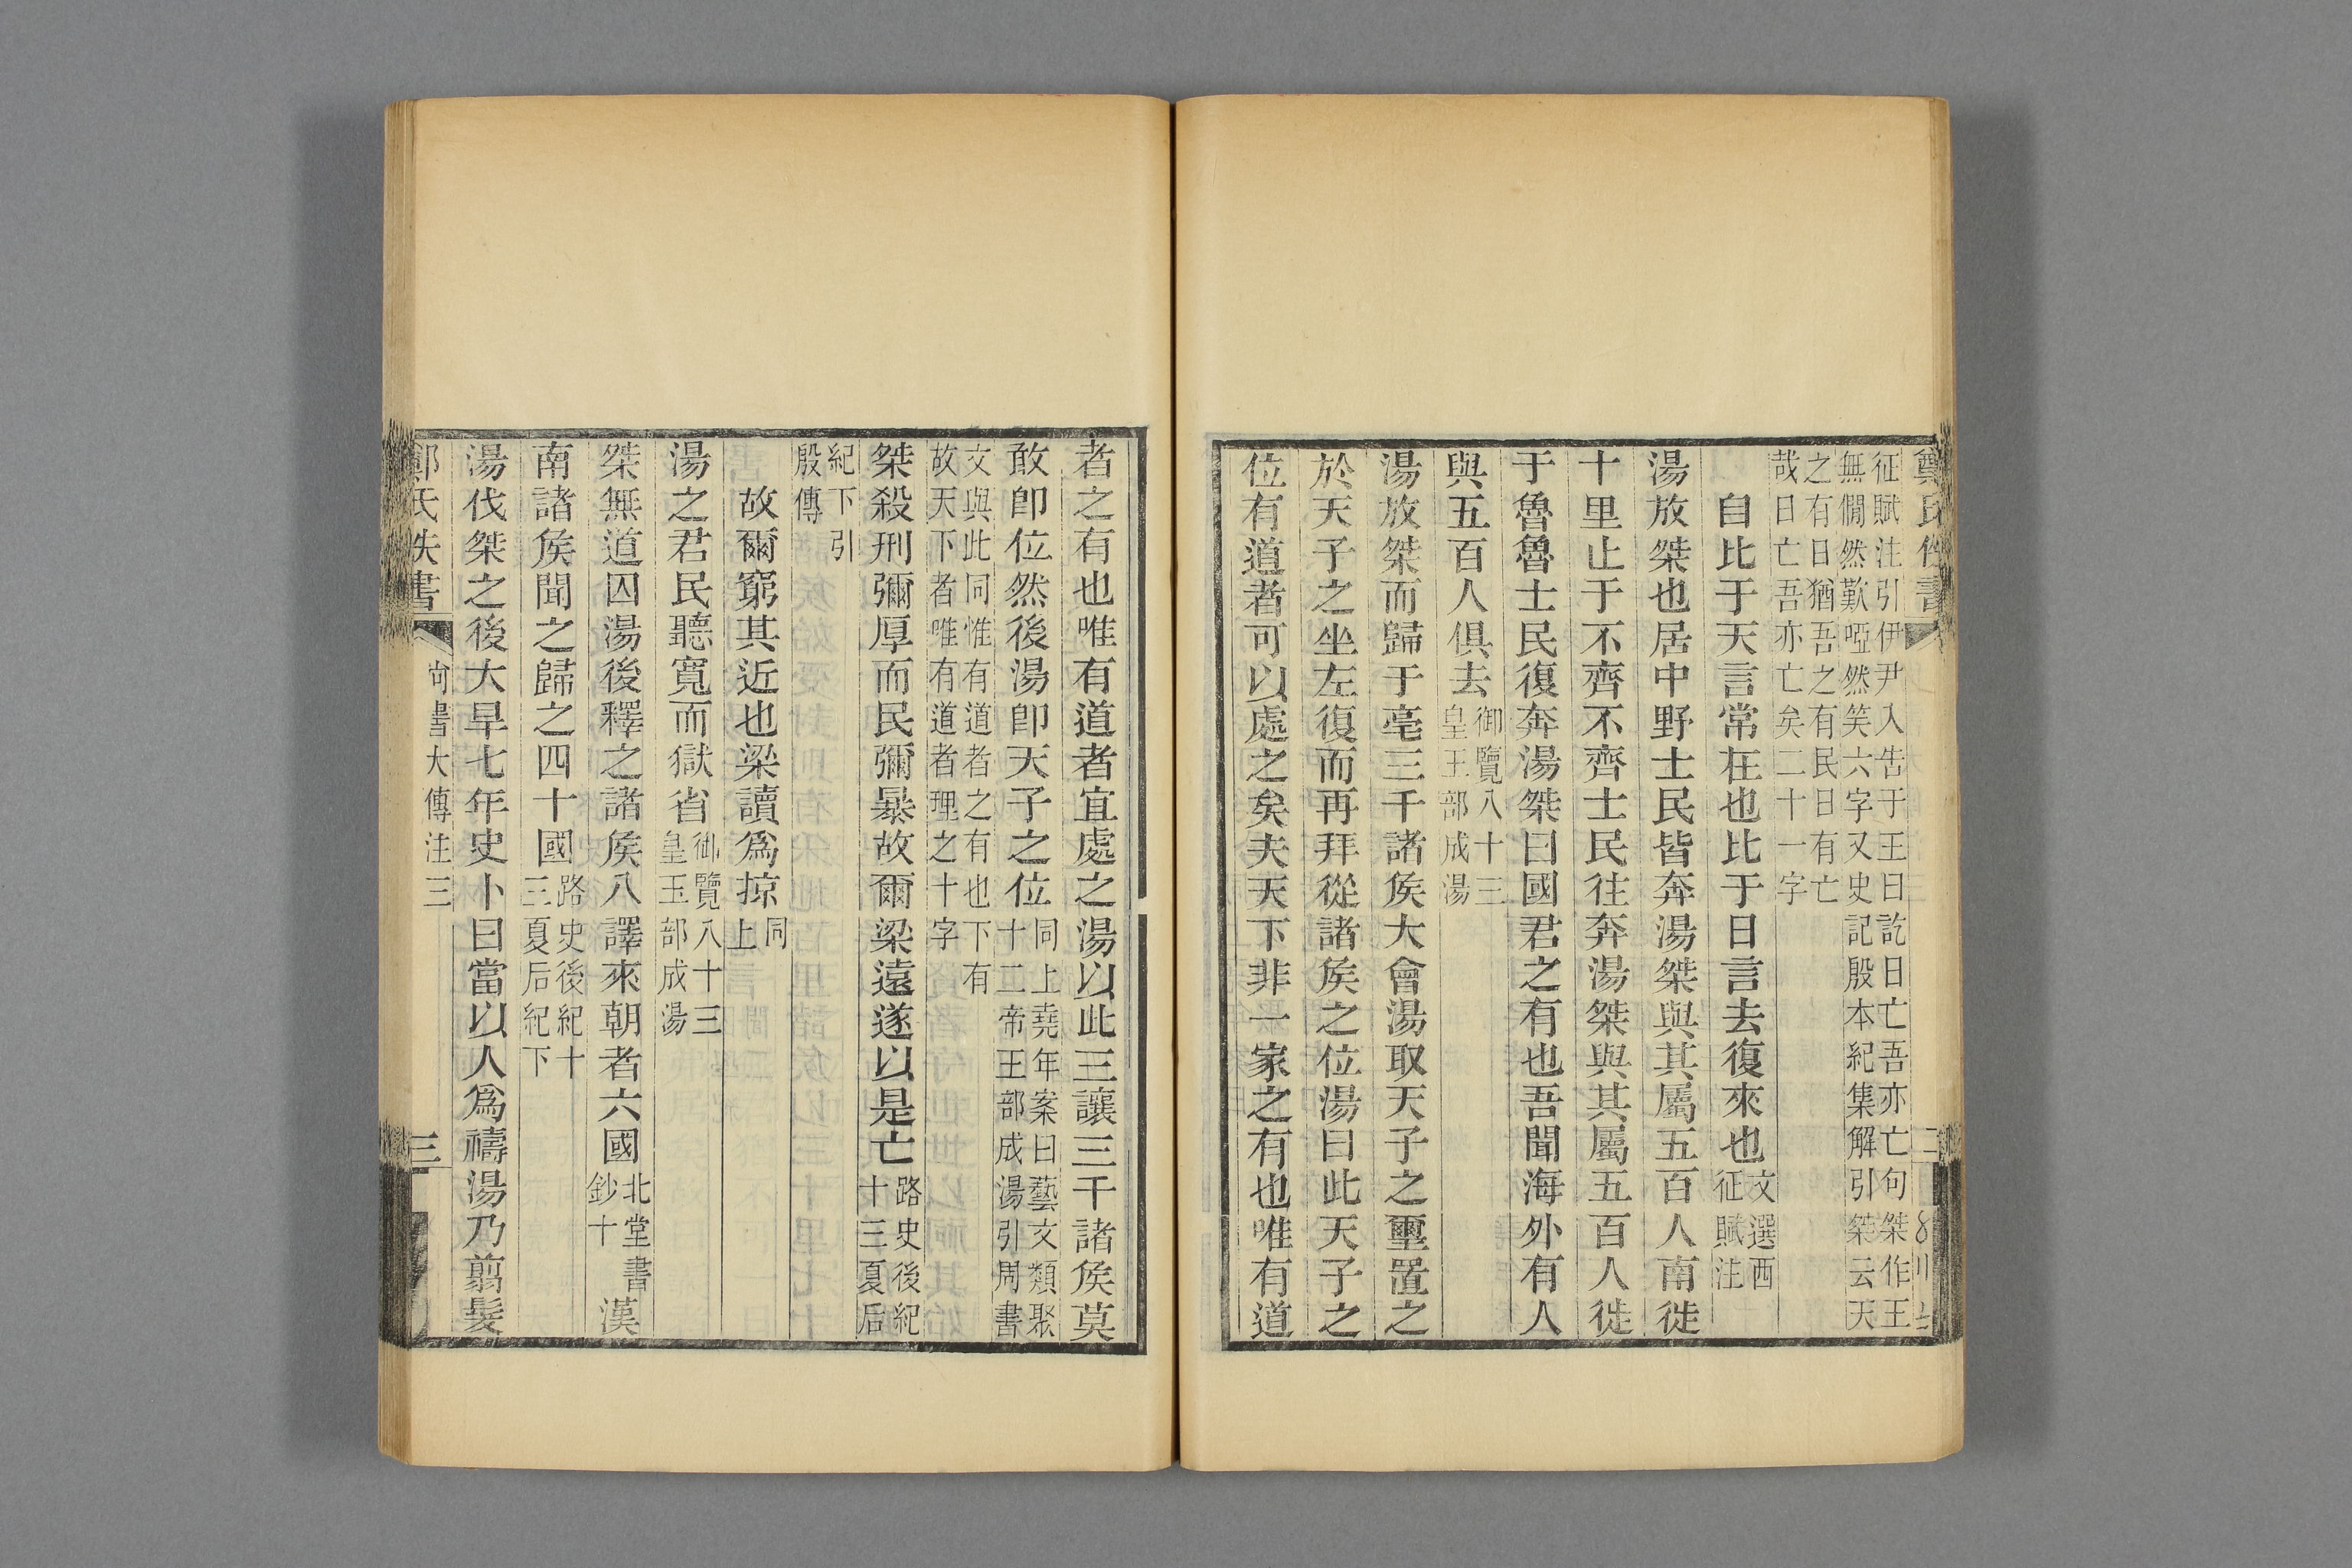 征賦注引伊尹入告于王曰訖日亡吾亦亡句桀作王
無僩然歎啞然笑六字又史記殷本紀集解引桀云天
之有日猶吾之有民日有亡
哉日亡吾亦亡矣二十一字
自比于天言常在也比于日言去復來也文選西征賦注
湯放桀也居中野士民皆奔湯桀與其屬五百人南徙
十里止于不齊不齊士民往奔湯桀與其屬五百人徙
于魯魯士民復奔湯桀曰國君之有也吾聞海外有人
與五百人俱去御覽八十三皇王部成湯
湯放桀而歸于亳三千諸矦大會湯取天子之璽置之
於天子之坐左復而再拜從諸矦之位湯曰此天子之
位有道者可以處之矣夫天下非一家之有也唯有道
者之有也唯有道者宜處之湯以此三讓三千諸矦莫
敢卽位然後湯卽天子之位同上堯年案曰藝文類聚十二帝王部成湯引周書
文與此同惟有道者之有也下有
故天下者唯有道者理之十字
桀殺刑彌厚而民彌暴故爾梁遠遂以是亡路史後紀十三夏后
紀下引
殷傳
故爾窮其近也梁讀爲掠同上
湯之君民聽寬而獄省御覽八十三皇王部成湯
桀無道囚湯後釋之諸矦八譯來朝者六國北堂書鈔十漢
南諸矦聞之歸之四十國路史後紀十三夏后紀下
湯伐桀之後大旱七年史卜曰當以人爲禱湯乃翦髮
鄭氏佚書
尙書大傳注三
三